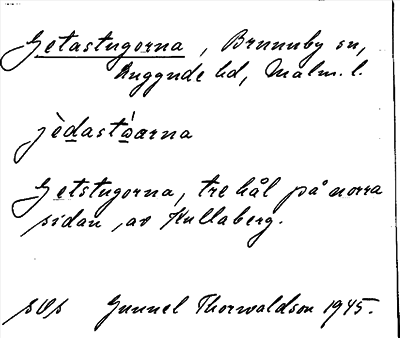 Getastugorna, Brunnby sn,
Ruggude hd, Malm. l.
jèdastáarna
Getstugorna, tre hål på norra
sidan, av Kullaberg.
Gunnel Thorwaldson 1945.